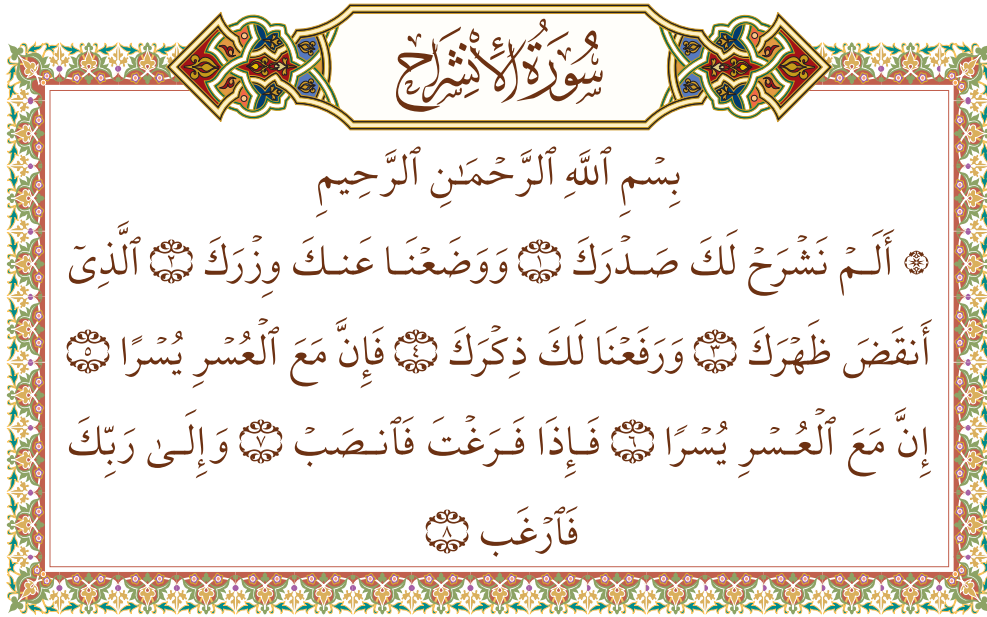 سُورَةُ الْإِنْشِرَاحِ
بِسْمِ ٱللَّهِ ٱلرَّحْمَـٰنِ ٱلرَّحِيمِ
۞ أَلَمْ نَشْرَحْ لَكَ صَدْرَكَ ١ وَوَضَعْنَا عَنكَ وِزْرَكَ ٢ ٱلَّذِىٓ
أَنقَضَ ظَهْرَكَ ٣ وَرَفَعْنَا لَكَ ذِكْرَكَ ٤ فَإِنَّ مَعَ ٱلْعُسْرِ يُسْرًا ٥
إِنَّ مَعَ ٱلْعُسْرِ يُسْرًا ٦ فَإِذَا فَرَغْتَ فَٱنصَبْ ٧ وَإِلَىٰ رَبِّكَ
فَٱرْغَب ٨